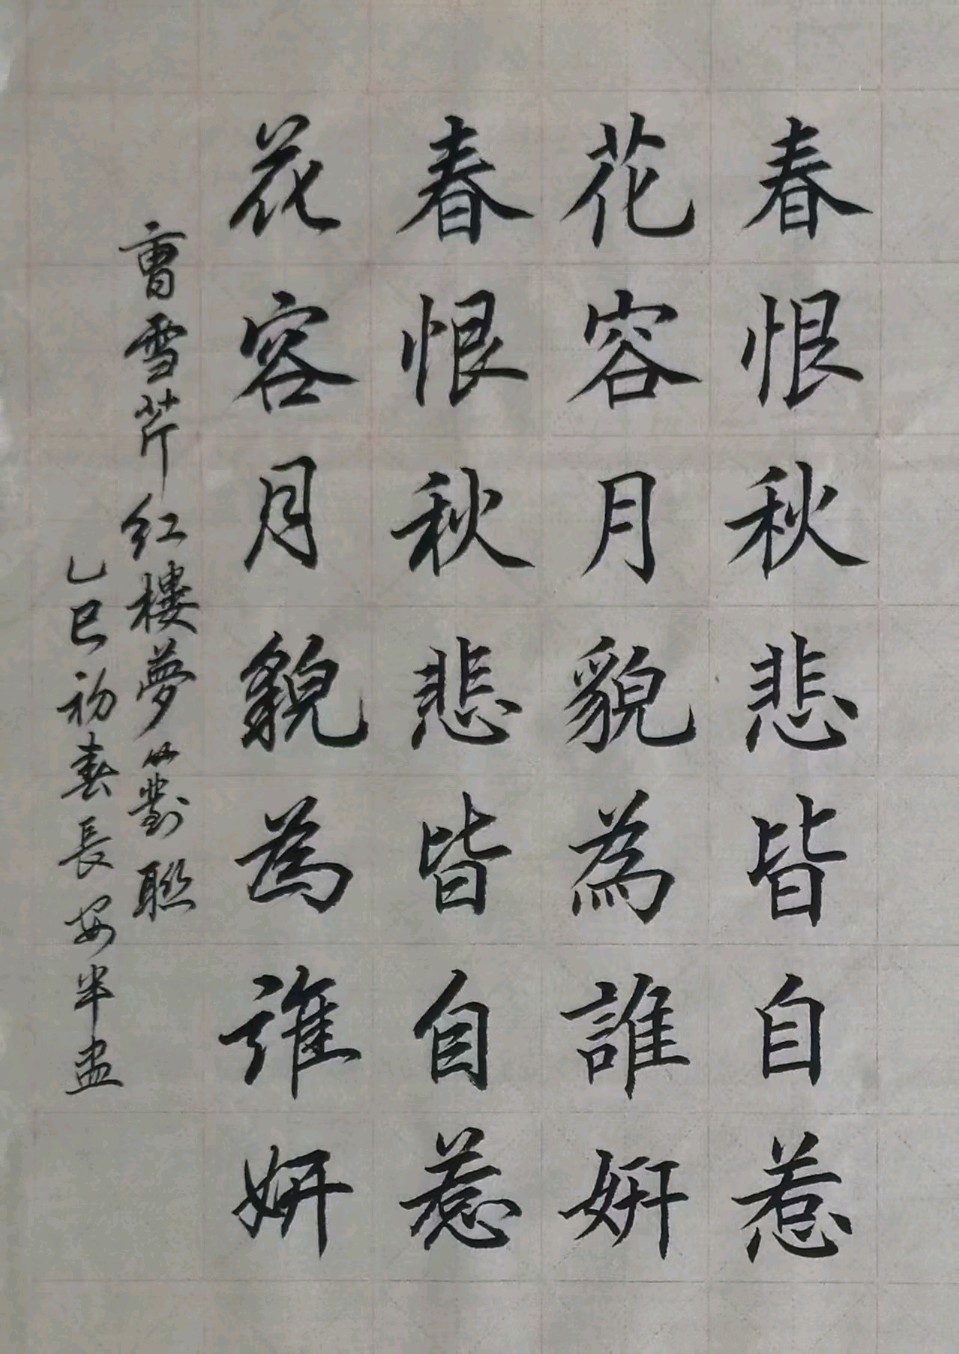 春恨秋悲皆自惹
花容月貌為誰妍
春恨秋悲皆自惹
花容月貌為誰妍
曹雪芹紅樓夢籤聯
乙巳初春長安半盅